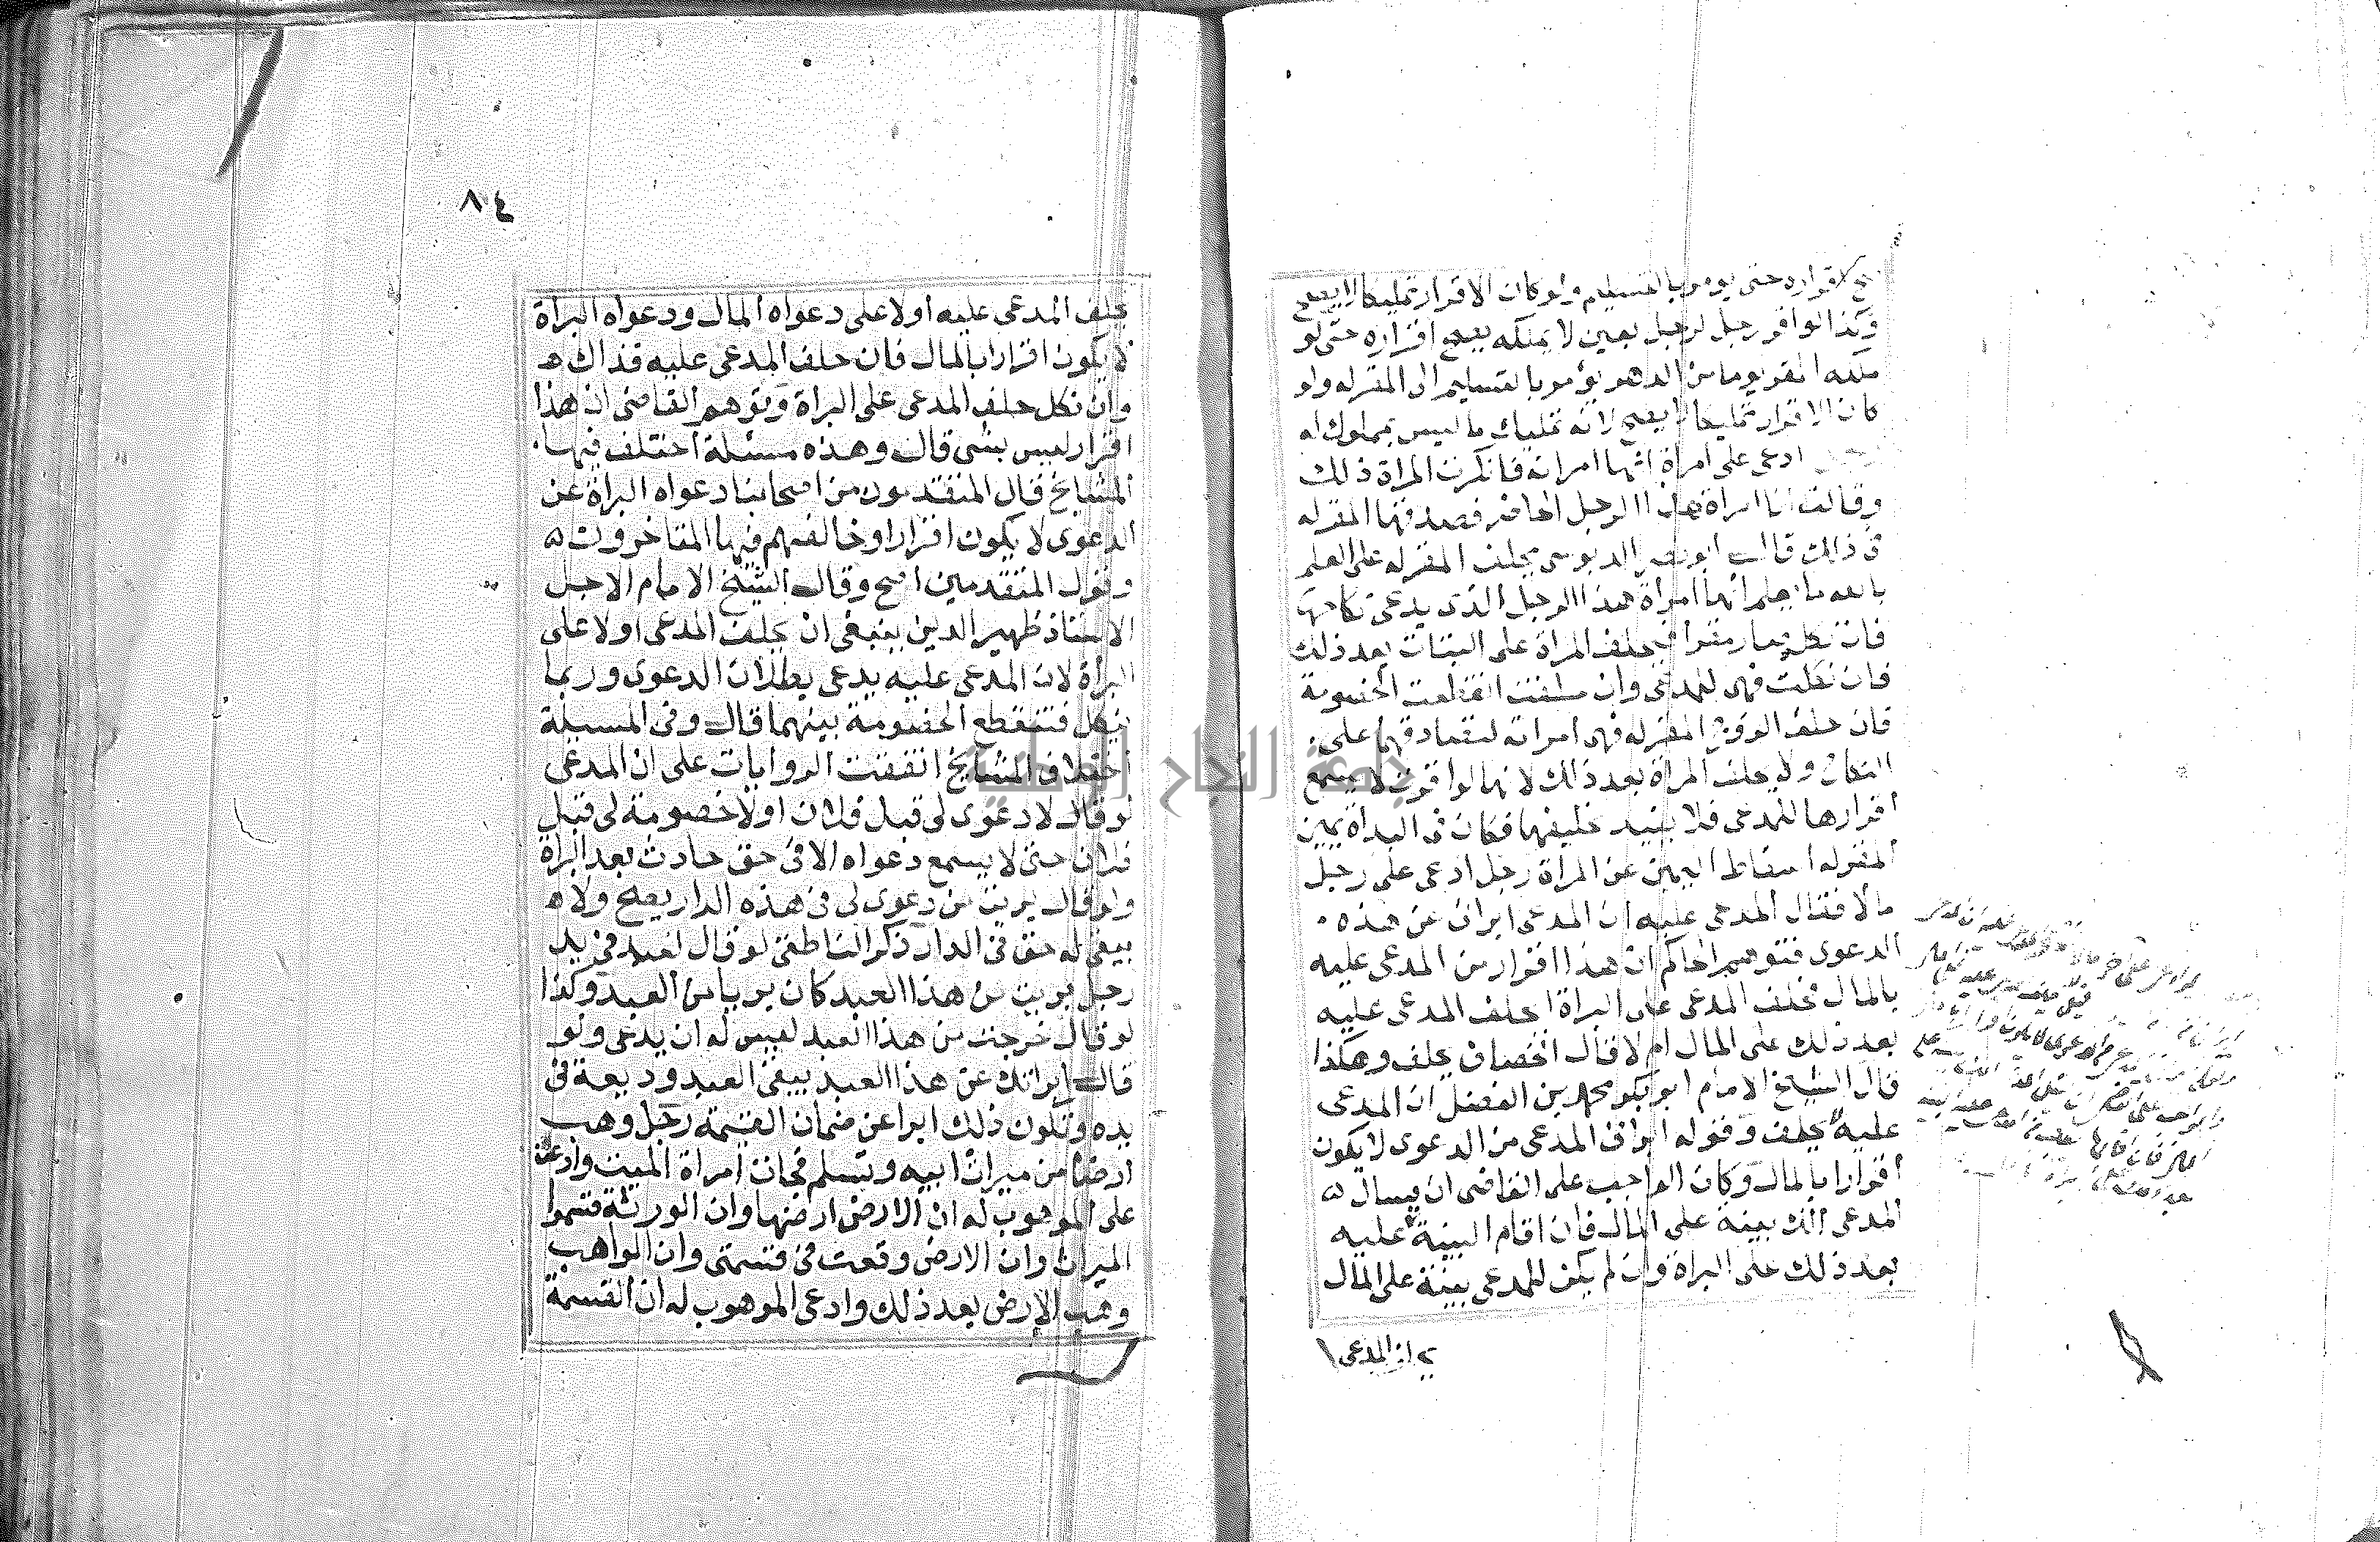 اقراره حتى يومر بالتسليم ولو كان الاقرار تمليكا لا يصح
وكذا لو اقر رجل لرجل بعين لا يملكه يصح اقراره حتى لو
ملكه المقر يوما من الدهر يؤمر بالتسليم الى المقر له ولو
كان الاقرار تمليكا لا يصح لانه تمليك ما ليس بمملوك له
ادعى على امراة انها امراته فانكرت المراة ذلك
وقالت انا امراة هذا الرجل الحاضر فصدقها المقر له
في ذلك قال ابو نصر الدبوسي يحلف المقر له على العلم
بالله ما يعلم انها امراة هذا الرجل الذى يدعى نكاحها
فان نكل صار مقرا يحلف المراة على البتات بعد ذلك
فان نكلت فهى للمدعى وان حلفت انقطعت الخصومة
فان حلف الزوج المقر له فهى امراته لتصادقهما على
النكاح ولا يحلف المراة بعد ذلك لانها لو اقرت لا يسمع
اقرارها للمدعى فلا يفيد تحليفها فكان فى البداة يمين
المقر له اسقاط اليمين عن المراة رجل ادعى على رجل
مالا فقال المدعى عليه ان المدعى ابرانى عن هذه
الدعوى فتوهم الحاكم ان هذا اقرار من المدعى عليه
بالمال فحلف المدعى على البراة احلف المدعى عليه
بعد ذلك على المال ام لا قال الخصاف يحلف وهكذا
قال الشيخ الامام ابو بكر محمد بن الفضل ان المدعى
عليه يحلف وقوله ابرانى المدعى من الدعوى لا يكون
اقرارا بالمال وكان الواجب على القاضى ان يسال
المدعى الك بينة على المال فان اقام البينة عليه
بعد ذلك على البراة وان لم يكن للمدعى بينة على المال
ان المدعى
٨٤
يحلف المدعى عليه اولا على دعواه المال ودعواه البراة
لا يكون اقرارا بالمال فان حلف المدعى عليه فذاك
وان نكل حلف المدعى على البراة وتوهم القاضى ان هذا
اقرار ليس بشى قال وهذه مسئلة اختلف فيها
المشايخ قال المتقدمون من اصحابنا دعواه البراة عن
الدعوى لا يكون اقرارا وخالفهم فيها المتاخرون
وقول المتقدمين اصح وقال الشيخ الامام الاجل
الاستاذ ظهير الدين ينبغى ان يحلف المدعى اولا على
البرأة لان المدعى عليه يدعى بطلان الدعوى وربما
ينكل فتنقطع الخصومة بينهما قال وفى المسيلة
اختلاف المشايخ اتفقت الروايات على ان المدعى
لو قال لا دعوى لى قبل فلان او لا خصومة لى قبل
فلان حتى لا يسمع دعواه الا فى حق حادث بعد البراة
ولو قال بريت من دعوى لى فى هذه الدار يصح ولا
يبقى له حق فى الدار ذكر الناطفى لو قال لعبد فى يد
رجل بريت من هذا العبد كان بريا من العبد وكذا
لو قال خرجت من هذا العبد ليس له ان يدعى ولو
قال ابراتك عن هذا العبد يبقى العبد وديعة فى
يده وتكون ذلك ابرا عن ضمان القيمة رجل وهب
ارضا من ميراث ابيه وتسلم فجات امراة الميت وادعت
على الموهوب له ان الارض ارضها وان الورثة قسموا
الميراث وان الارض وقعت فى قسمتى وان الواهب
وهب الارض بعد ذلك وادعى الموهوب له ان القسمة